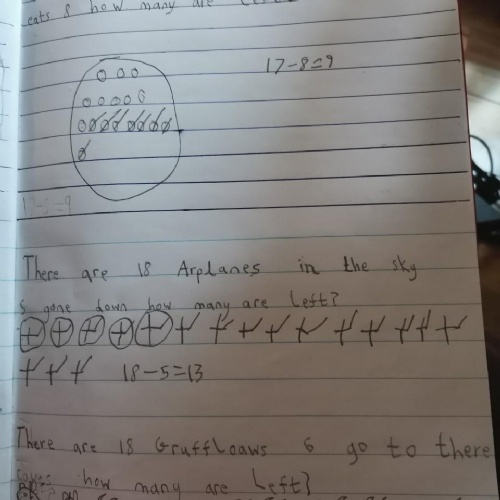 eats 8 how many are Left?
17-8=9
17-8=9
There are 18 Arplanes in the sky
5 gone down how many are Left?
18-5=13
There are 18 Gruffloaws 6 go to there
how many are Left?